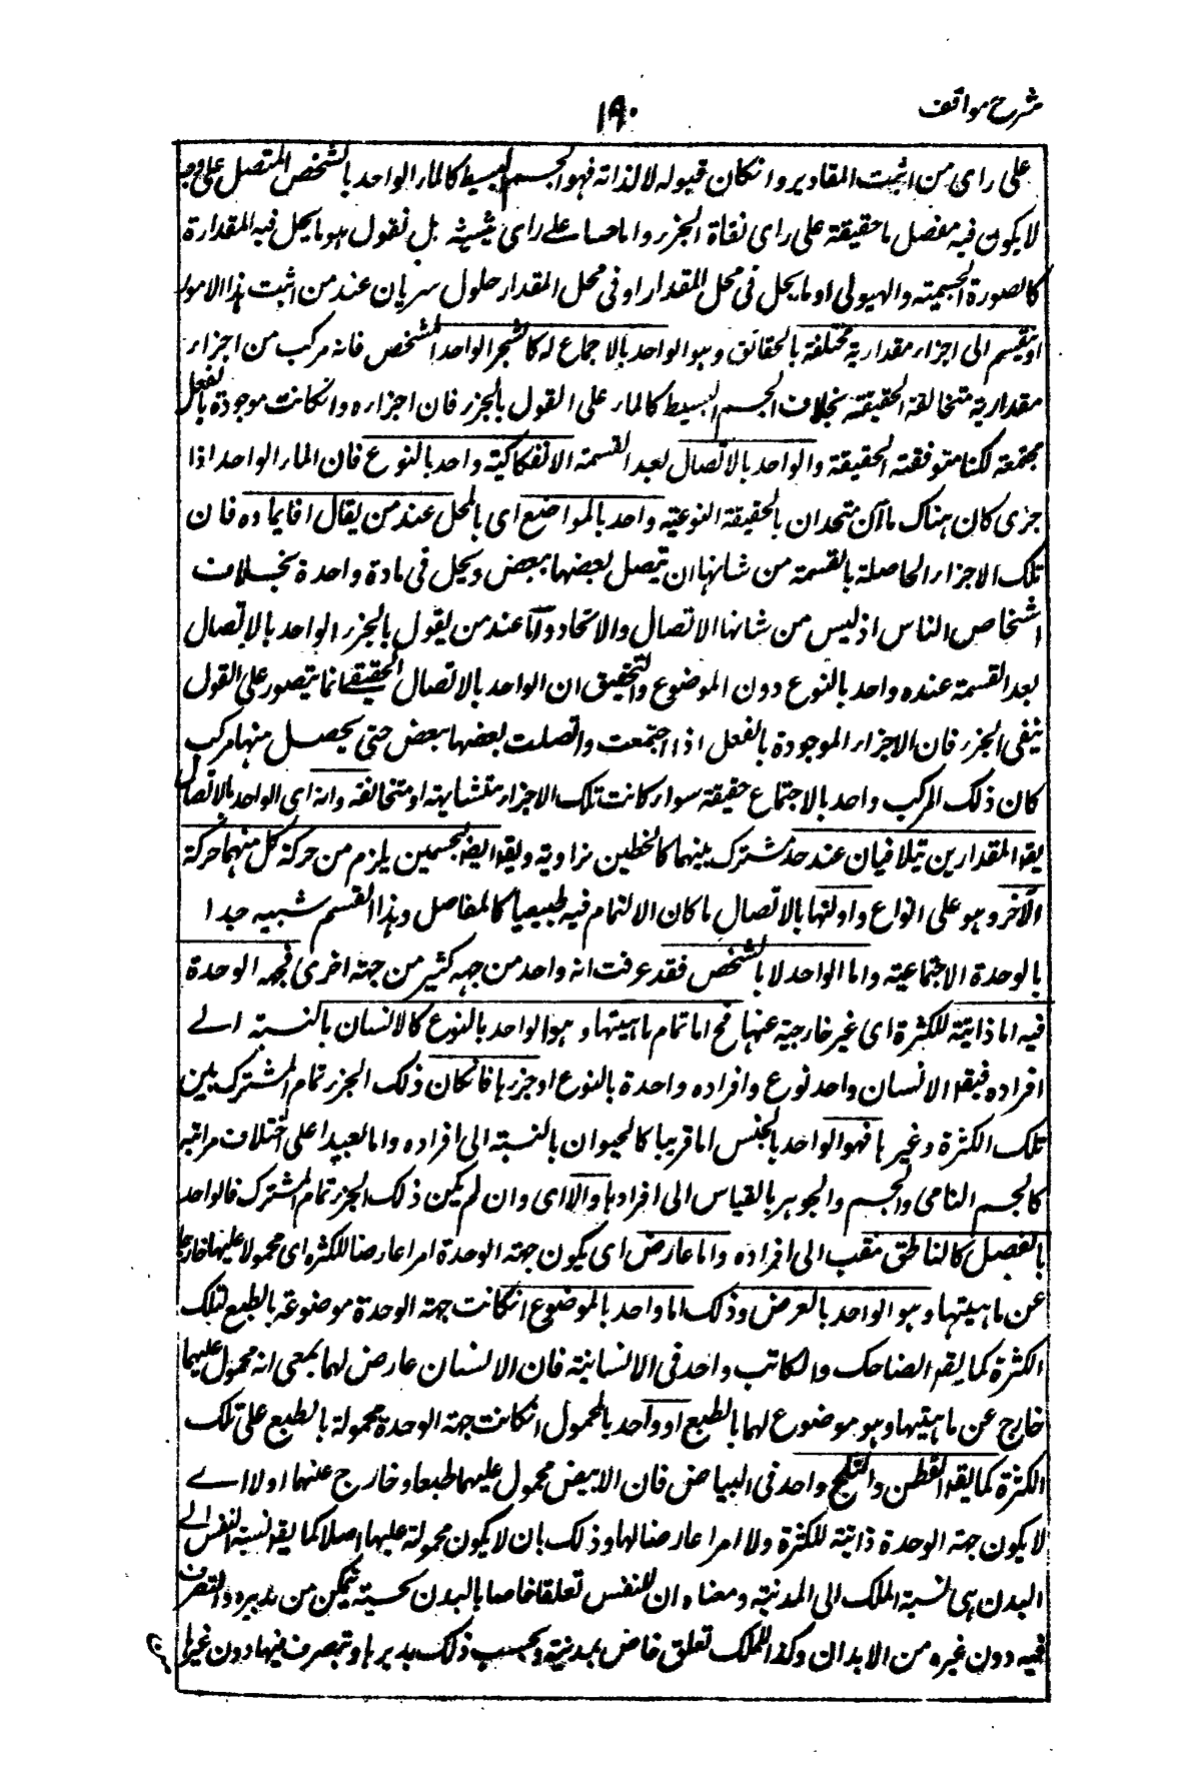 شرح مواقف
١٩٠
على راى من اثبت المقادير وانكان قبوله لا لذاته فهو الجسم البسيط كالماء الواحد بالشخص المتصل على وجه
لا يكون فيه مفصل ما حقيقة على راى نفاة الجزء واما حسا على راى مثبتيه بل نقول هو ما يحل فيه المقدارة
كالصورة الجسمية والهيولى او ما يحل فى محل المقدار او فى محل المقدار حلول سريان عند من اثبت هذا الامور
او ينقسم الى اجزاء مقدارية مختلفة بالحقائق وهو الواحد بالاجماع له كالشجر الواحد المشخص فانه مركب من اجزاء
مقدارية متخالفة الحقيقة بخلاف الجسم البسيط كالماء على القول بالجزء فان اجزاره وانكانت موجودة بالفعل
مجتمعة لكنها متوفقة الحقيقة والواحد بالاتصال بعد القسمة الانفكاكية واحد بالنوع فان الماء الواحد اذا
جزى كان هناك ماآن متحدان بالحقيقة النوعية واحد بالمواضع اى بالمحل عند من يقال افا بمادة فان
تلك الاجزاء الحاصلة بالقسمة من شانها ان يتصل بعضها ببعض ويحل فى مادة واحدة بخلاف
اشخاص الناس اذ ليس من شانها الاتصال والاتحاد وآما عند من يقول بالجزء الواحد بالاتصال
بعد القسمة عنده واحد بالنوع دون الموضوع والتحقيق ان الواحد بالاتصال الحقيقى انما يتصور على القول
بنفى الجزء فان الاجزاء الموجودة بالفعل اذا اجتمعت واتصلت بعضها ببعض حتى يحصل منها مركب
كان ذلك المركب واحد بالاجتماع حقيقة سواء كانت تلك الاجزاء متشابهة او متخالفة وانه اى الواحد بالاتصال
يقو المقدارين يتلاقيان عند حد مشترك بينهما كالخطين بزاوية ويقو ايضا لجسمين يلزم من حركة كل منهما حركة
الآخر وهو على انواع واولها بالاتصال ما كان الالتمام فيه طبيعيا كالمفاصل وهذا القسم شبيه جدا
بالوحدة الاجتماعية واما الواحد لا بالشخص فقد عرفت انه واحد من جهه كثير من جهة اخرى فجهه الوحدة
فيه اما ذاتية للكثرة اى غير خارجية عنها فح اما تمام ماهيتها وهو الواحد بالنوع كالانسان بالنسبة الے
افراده فيقو الانسان واحد نوع وافراده واحدة بالنوع او جزرها فانكان ذلك الجزء تمام المشترك بين
تلك الكثرة وغيرها فهو الواحد بالجنس اما قريبا كالحيوان بالنسبة الى افراده واما بعيدا على اختلاف مراتبه
كالجسم النامى والجسم والجوهر بالقياس الى افرادها والا اى وان لم يكن ذلك الجزء تمام المشترك فالواحد
بالفصل كالناطق مقب الى افراده واما عارض اى يكون جهة الوحدة امرا عارضا للكثرة اى محمولا عليها خارجا
عن ماهيتها وهو الواحد بالعرض وذلك اما واحد بالموضوع انكانت جهة الوحدة موضوعة بالطبع لتلك
الكثرة كما يقو الضاحك والكاتب واحد فى الانسانية فان الانسان عارض لهما بمعى انه محمول عليهما
خارج عن ماهيتهما وهو موضوع لهما بالطبع او واحد بالمحمول انكانت جهة الوحدة محمولة بالطبع على تلك
الكثرة كما يقو القطن والثلج واحد فى البياض فان الابيض محمول عليهما طبعا وخارج عنهما اولا اے
لا يكون جهة الوحدة ذاتية للكثرة ولا امرا عارضا لها وذلك بان لا يكون محمولة عليها اصلا كما يقو نسبة النفس الے
البدن هى نسبة الملك الى المدنية ومعناه ان للنفس تعلقا خاصا بالبدن بحسبه تتمكن من تدبيره والتصرف
فيه دون غيره من الابدان وكذا للملك تعلق خاص بمدنية وبحسب ذلك يدبرها ويتصرف فيها دون غيرها